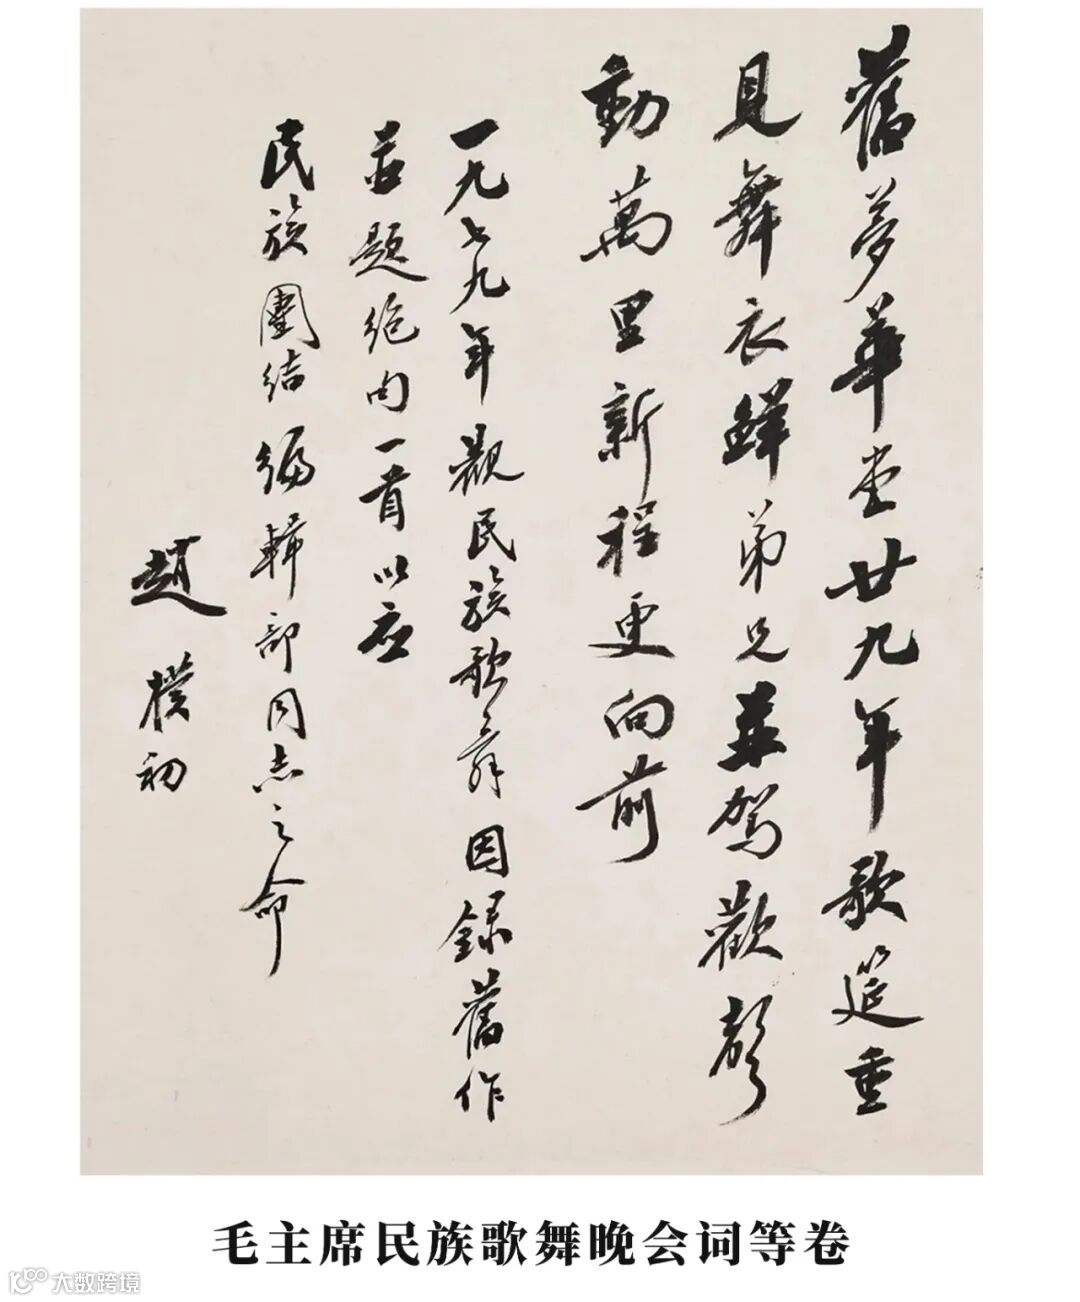 舊夢華堂廿九年歌筵重
見舞衣鮮弟兄並駕歡聲
動萬里新程更向前
一九七九年觀民族歌舞因録舊作
並題絕句一首以应
民族團结编輯部同志之命
趙樸初
毛主席民族歌舞晚会词等卷
大数跨境